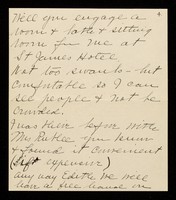 4.
Will you engage a
room & bath & sitting
room for me at
St James Hotel
Not too swank - but
comfortable so I can
see people & not be
crowded.
I was there before with
Mr. you know
& found it convenient
( expensive)
Any way Edith we will
have a free house in